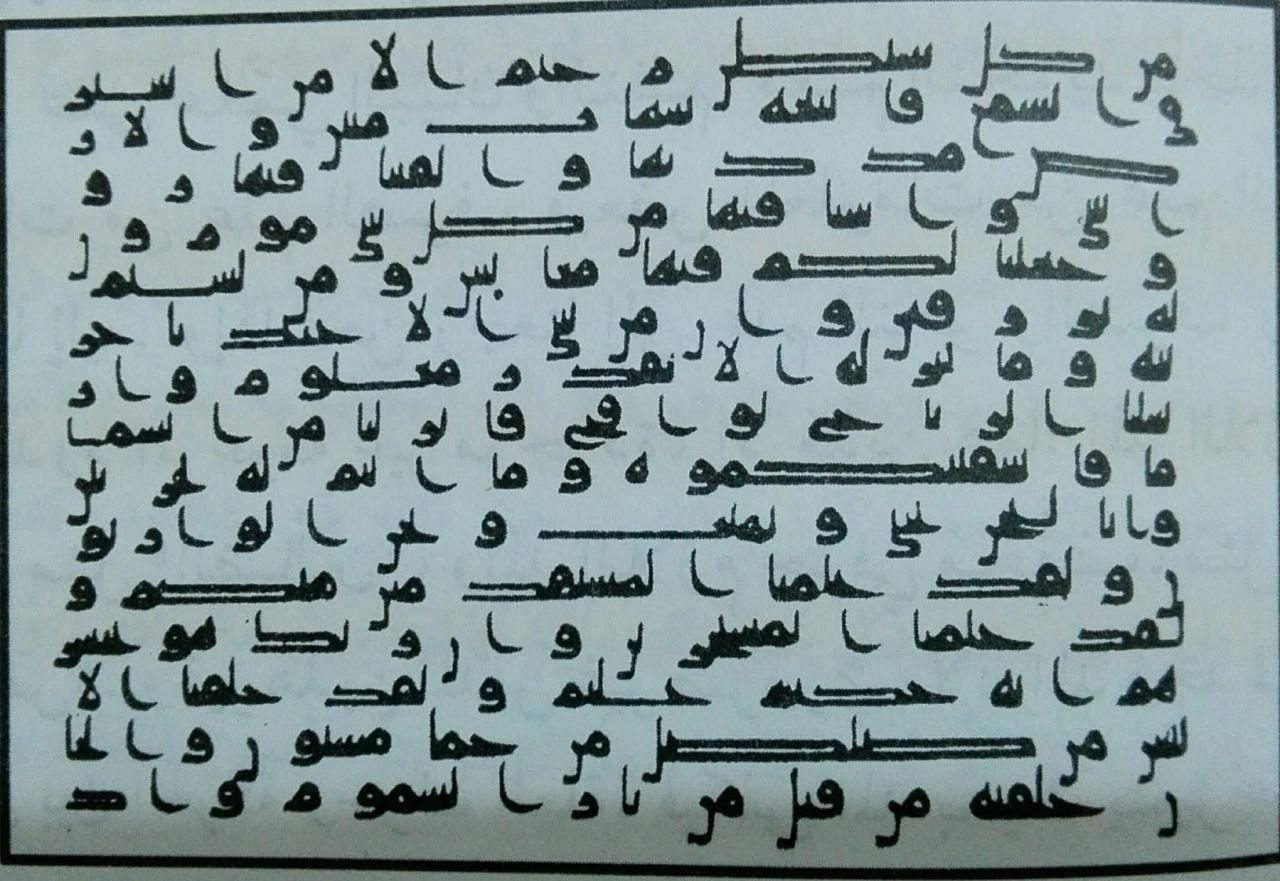 من كل شيطن رجيم الا من استر
ق السمع فاتبعه شهاب مبين والار
ض مددنها والقينا فيها رو
اسي وانبتنا فيها من كل شي موزون
وجعلنا لكم فيها معيش ومن لستم
له برزقين وان من شي الا عندنا خز
ئنه وما ننزله الا بقدر معلوم وار
سلنا الريح لوقح فانزلنا من السما
ما فاسقينكموه وما انتم له بخزنين
وانا لنحن نحي ونميت ونحن الوارثو
ن ولقد علمنا المستقدمين منكم و
لقد علمنا المستخرين وان ربك هو يحشر
هم انه حكيم عليم ولقد خلقنا الا
نسن من صلصل من حما مسنون والجا
ن خلقنه من قبل من نار السموم واذ